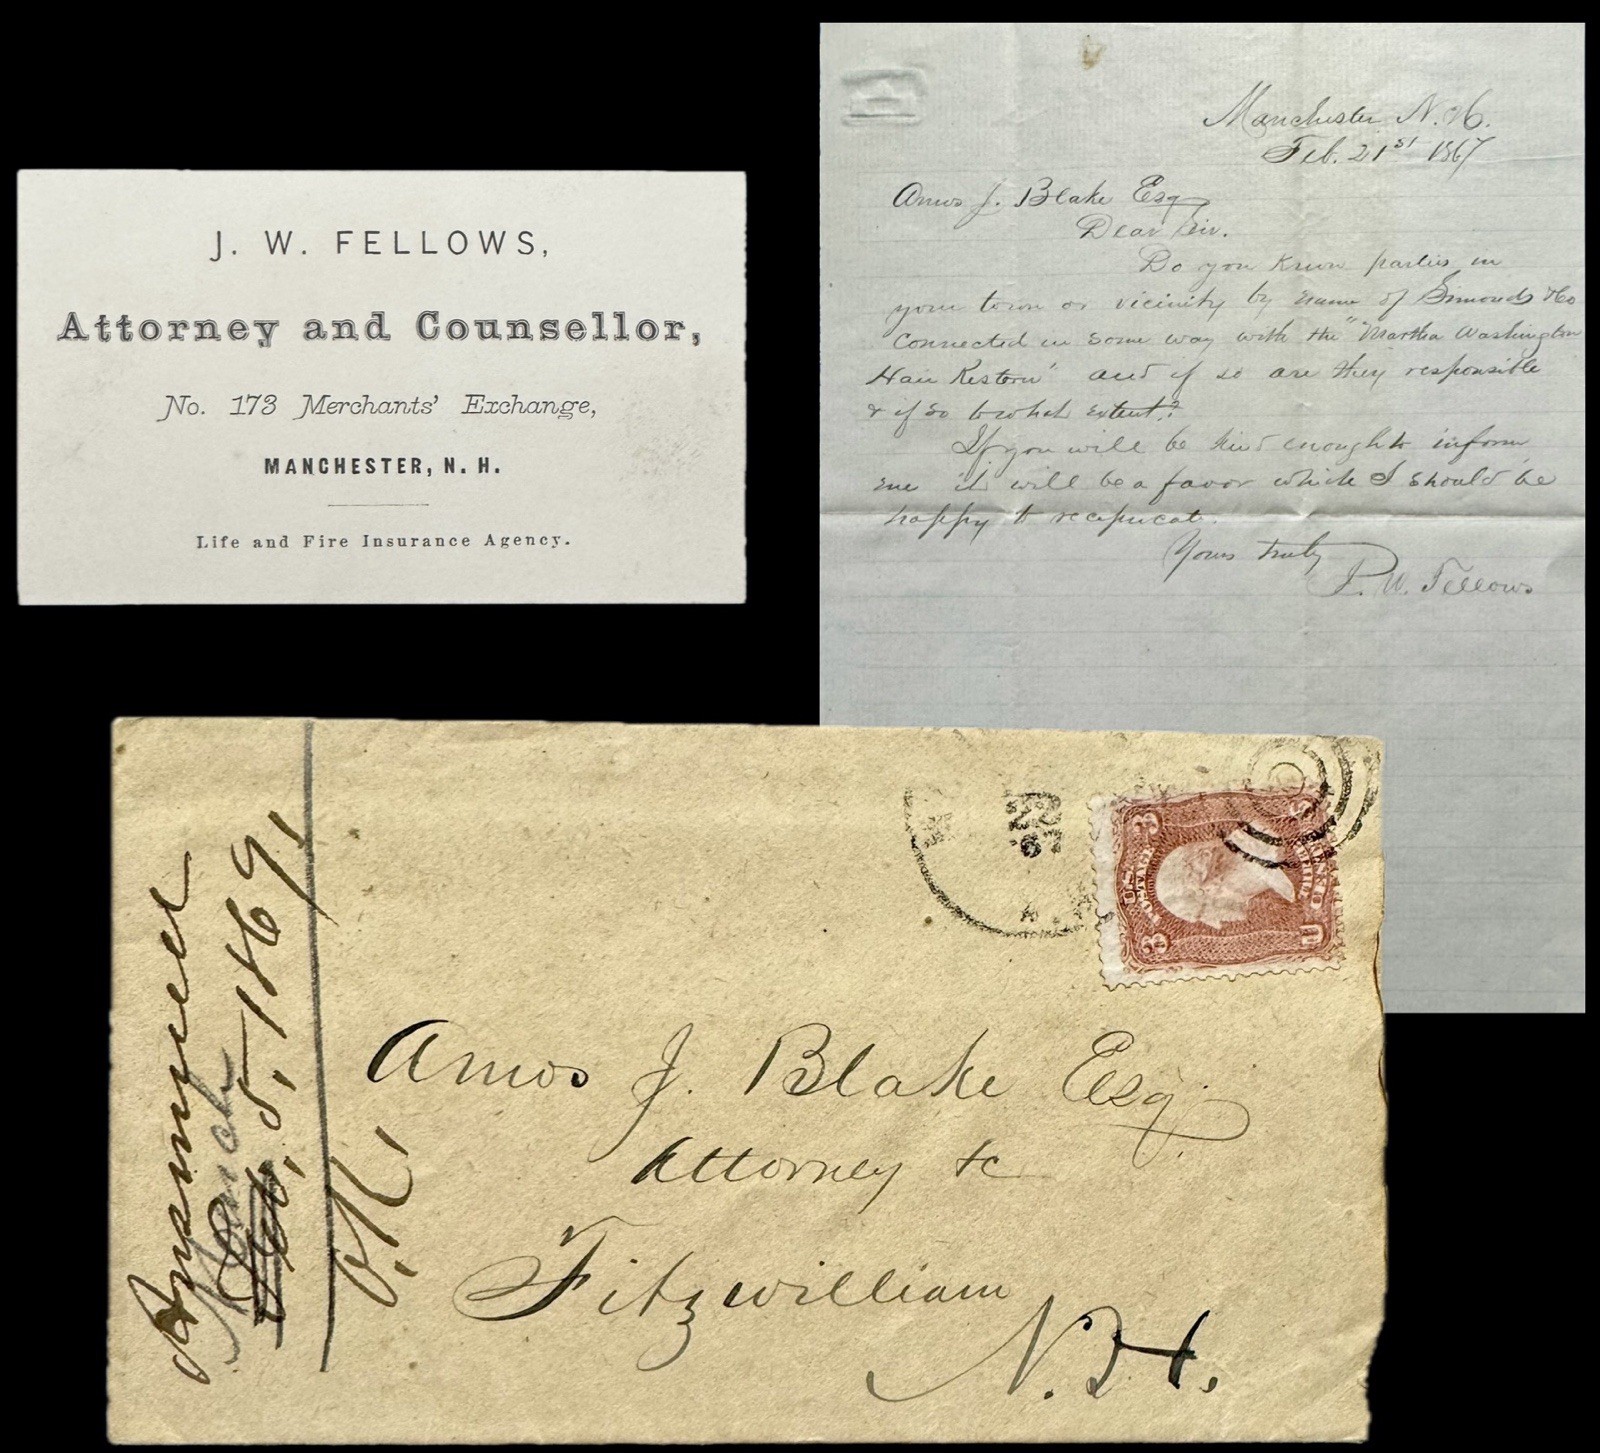 J. W. FELLOWS,
Attorney and Counsellor,
No. 173 Merchants' Exchange,
MANCHESTER, N. H.
Life and Fire Insurance Agency.
Manchester N. H.
Feb. 21st 1867
Amos J. Blake Esq
Dear Sir.
Do you know parties in
your town or vicinity by name of Simonds & Co
Connected in some way with the "Martha Washington
Hair Restorer" and if so are they responsible
& if so to what extent?
If you will be kind enough to inform
me it will be a favor which I should be
happy to reciprocate.
Yours truly
J. W. Fellows
Answered
March
Feb. 5, 1867,
O.K.
22
3 3
U.S. POSTAGE
Amos J. Blake Esq.
Attorney &c
Fitzwilliam
N. H.